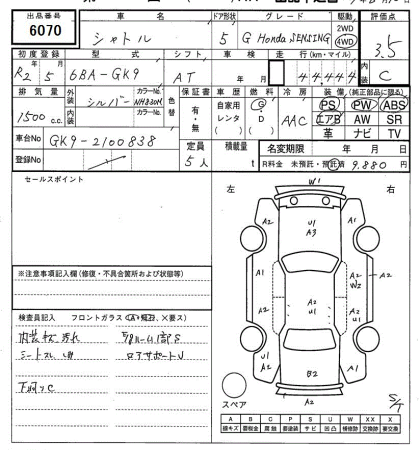 出品番号 車名 ドア形状 グレード 駆動 評価点
6070 シャトル 5 G Honda SENSING 2WD 4WD 3.5
初度登録 型式 シフト 車検 走行(km・マイル) 内装
R2 5 6BA-GK9 AT 年 月 44,444 C
排気量 外装 カラーNo. 色替 保証書 車歴 燃料 冷房 装備(純正部品に限る)
1500 c.c. シルバー NH830M 有・無 自家用 G AAC PS PW ABS
内装 カラーNo. レンタ D エアB AW SR
( ) ( ) 革 ナビ TV
車台No GK9-2100838 定員 積載量 名変期限 年 月 日
登録No 5人 t R料金 未預託・預託済 9,880 円
セールスポイント
左 右
W1
A2 U1 A3 A2
A1 A1
A2 A2 W2 A2
A2 U1 A2 U1
A1
U1 A1 B2 A1
スペア S/T
※注意事項記入欄(修復・不具合箇所および状態等)
検査員記入 フロントガラス(A・飛石、×要ス)
内装 汚れ
シートスレ
リアサポートU
下回りC
A B C P S U W X XX
線キズ 要板金 腐蝕 要塗装 サビ 凹凸 補修跡 要交換 交換済